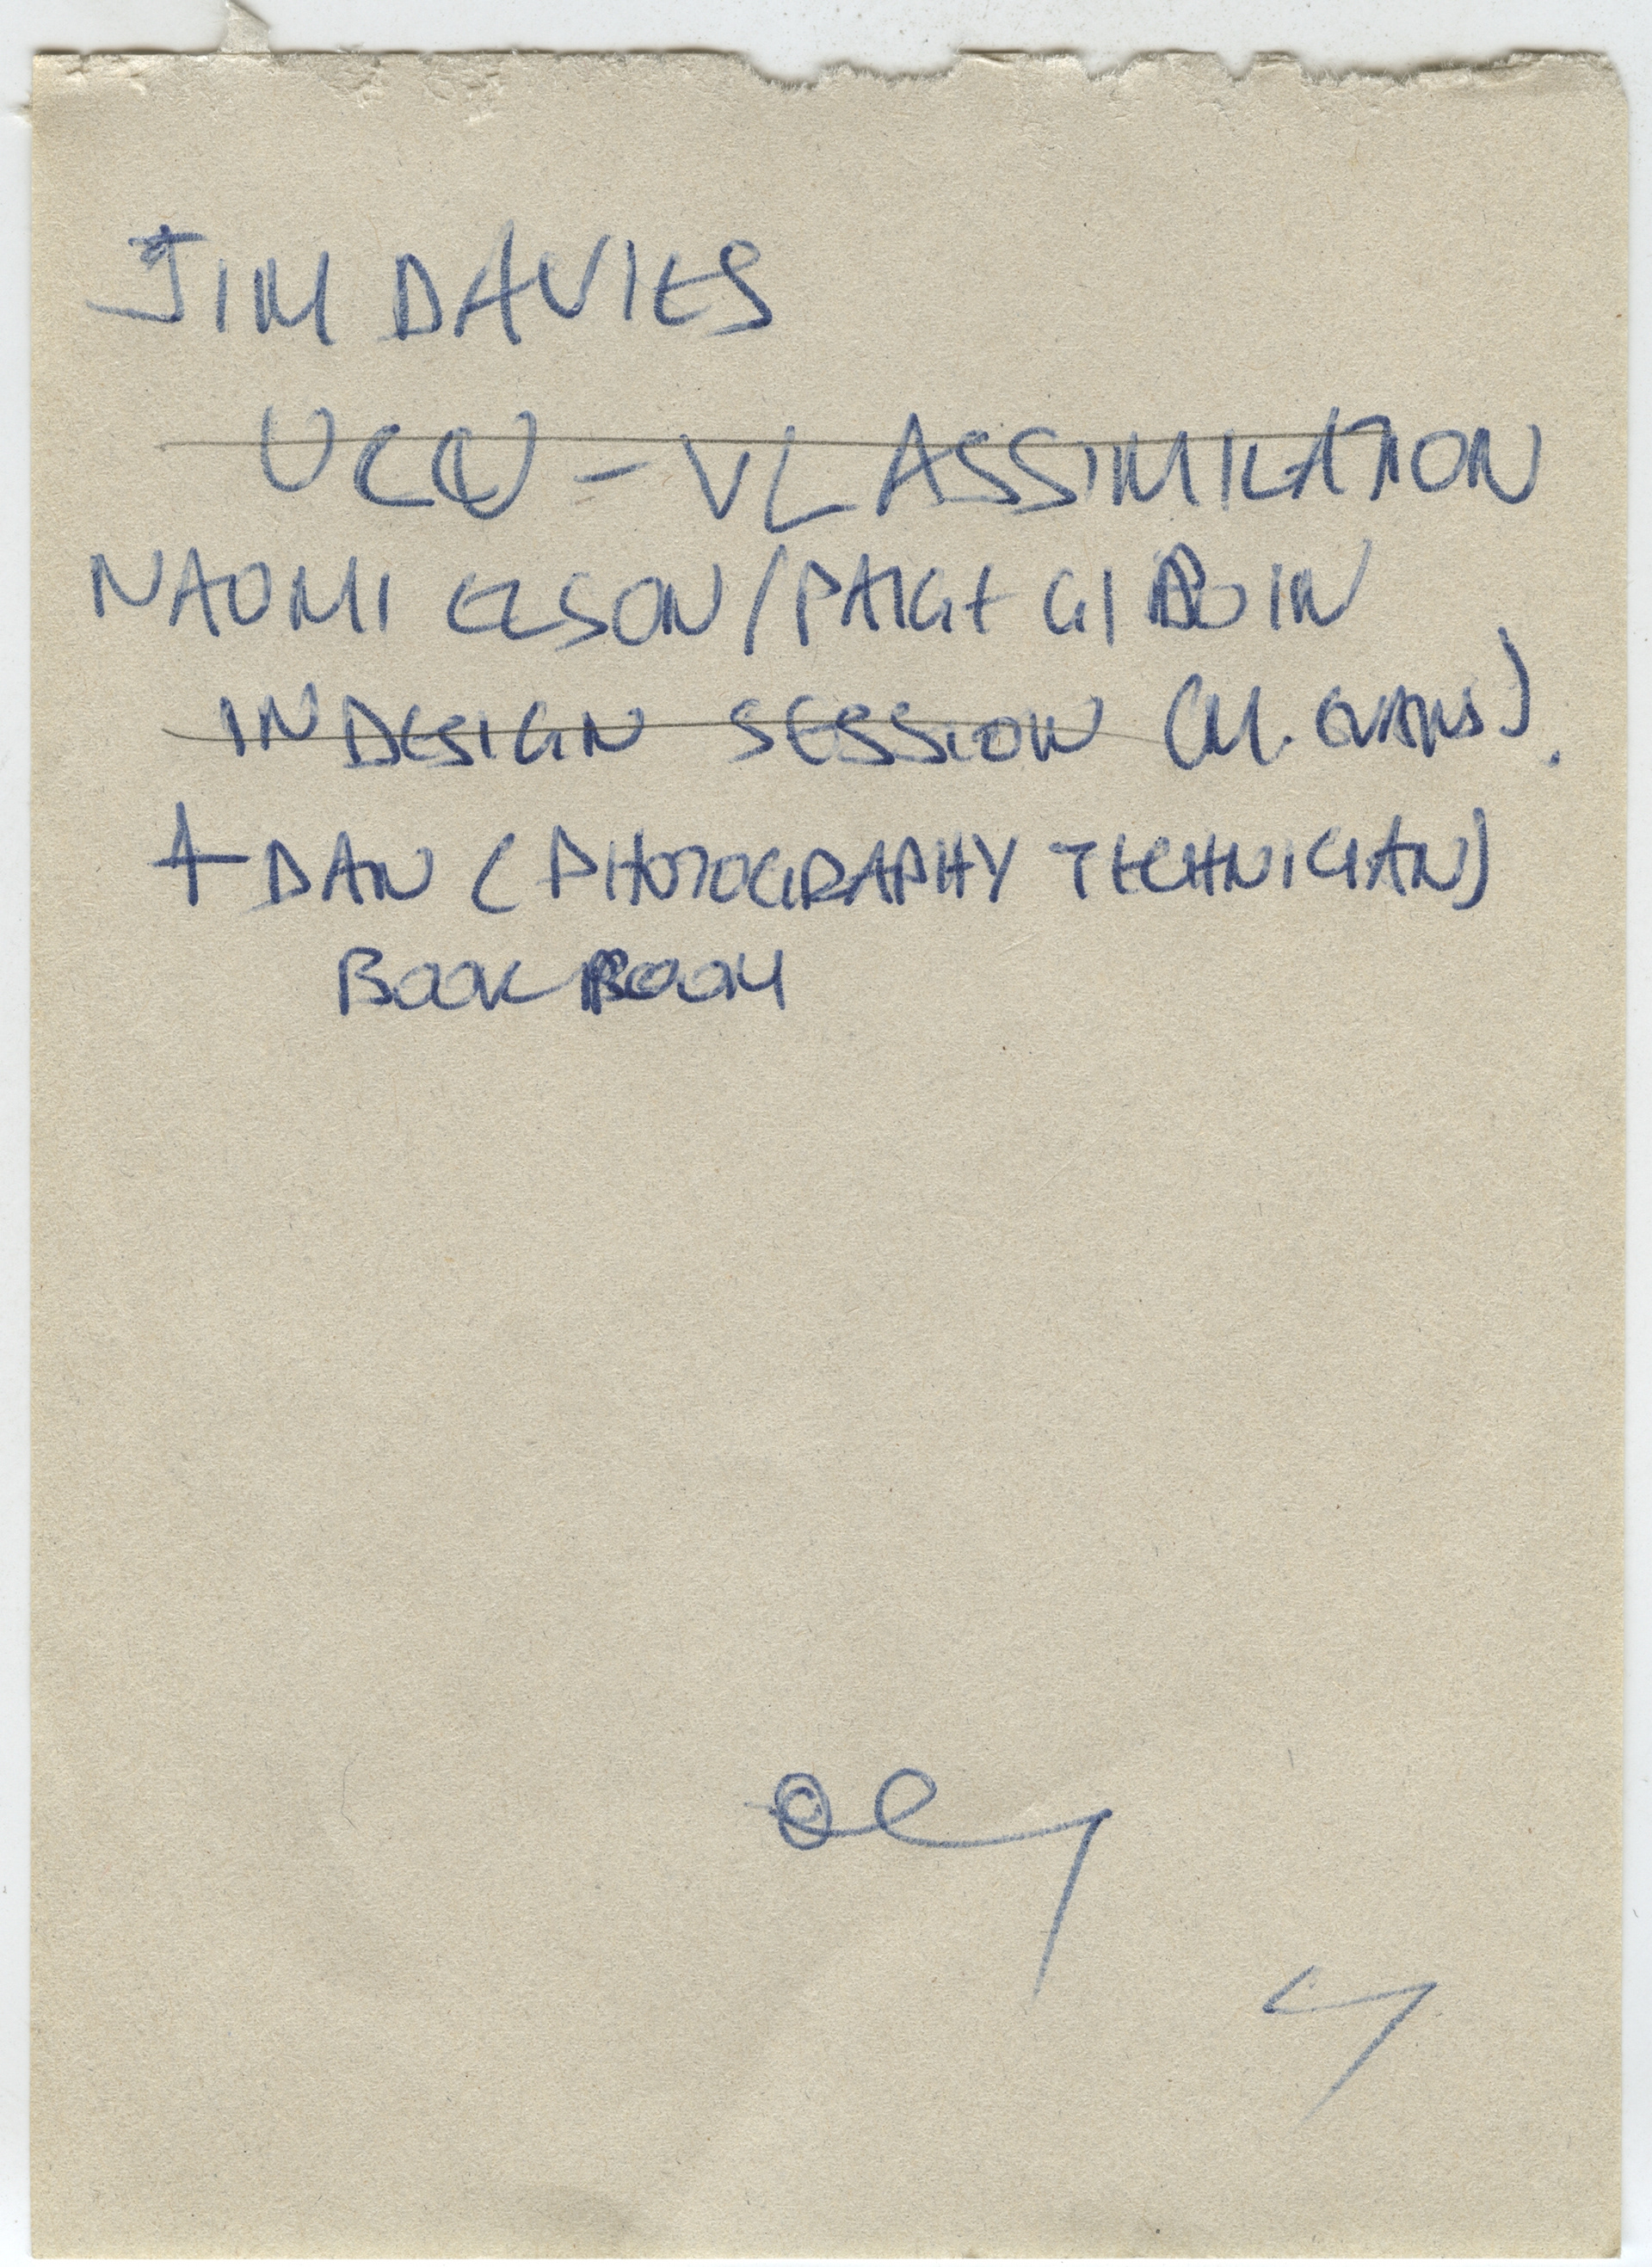 JIM DAVIES
VL ASSIMILATION
NAOMI ELSON / PAIGE
INDESIGN SESSION (M. EVANS).
+ DAN (PHOTOGRAPHY TECHNICIAN)
BOOK ROOM